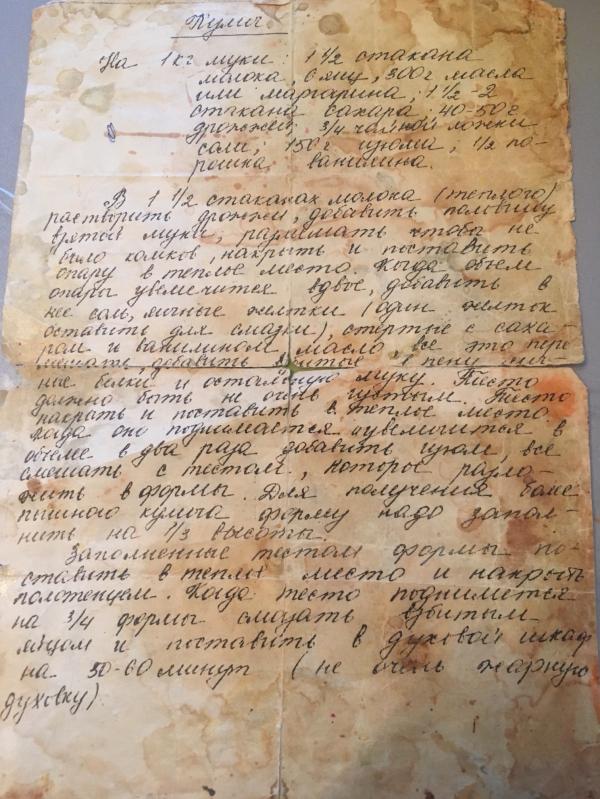 Кулич.
На 1 кг муки: 1 1/2 стакана
молока, 6 яиц, 300 г масла
или маргарина, 1 1/2 - 2
стакана сахара 40-50 г
дрожжей, 3/4 чайной ложки
соли, 150 г изюма, 1/2 по-
рошка ванилина.
В 1 1/2 стаканах молока (теплого)
растворить дрожжи, добавить половину
взятой муки, размешать чтобы не
было комков, накрыть и поставить
опару в теплое место. Когда объем
опары увеличится вдвое, добавить в
нее соль, яичные желтки (один желток
оставить для смазки), стертые с саха-
ром и ванилином, масло, все это пере
мешать, добавить взбитые в пену яич-
ные белки и остальную муку. Тесто
должно быть не очень густым. Тесто
накрыть и поставить в теплое место
когда оно поднимается и увеличится в
объеме в два раза добавить изюм, все
смешать с тестом, которое разло-
жить в формы. Для получения более
пышного кулича форму надо запол-
нить на 1/3 высоты.
Заполненные тестом формы по-
ставить в теплое место и накрыть
полотенцем. Когда тесто поднимется
на 3/4 формы смазать взбитым
яйцом и поставить в духовой шкаф
на 50-60 минут (не очень жаркую
духовку)